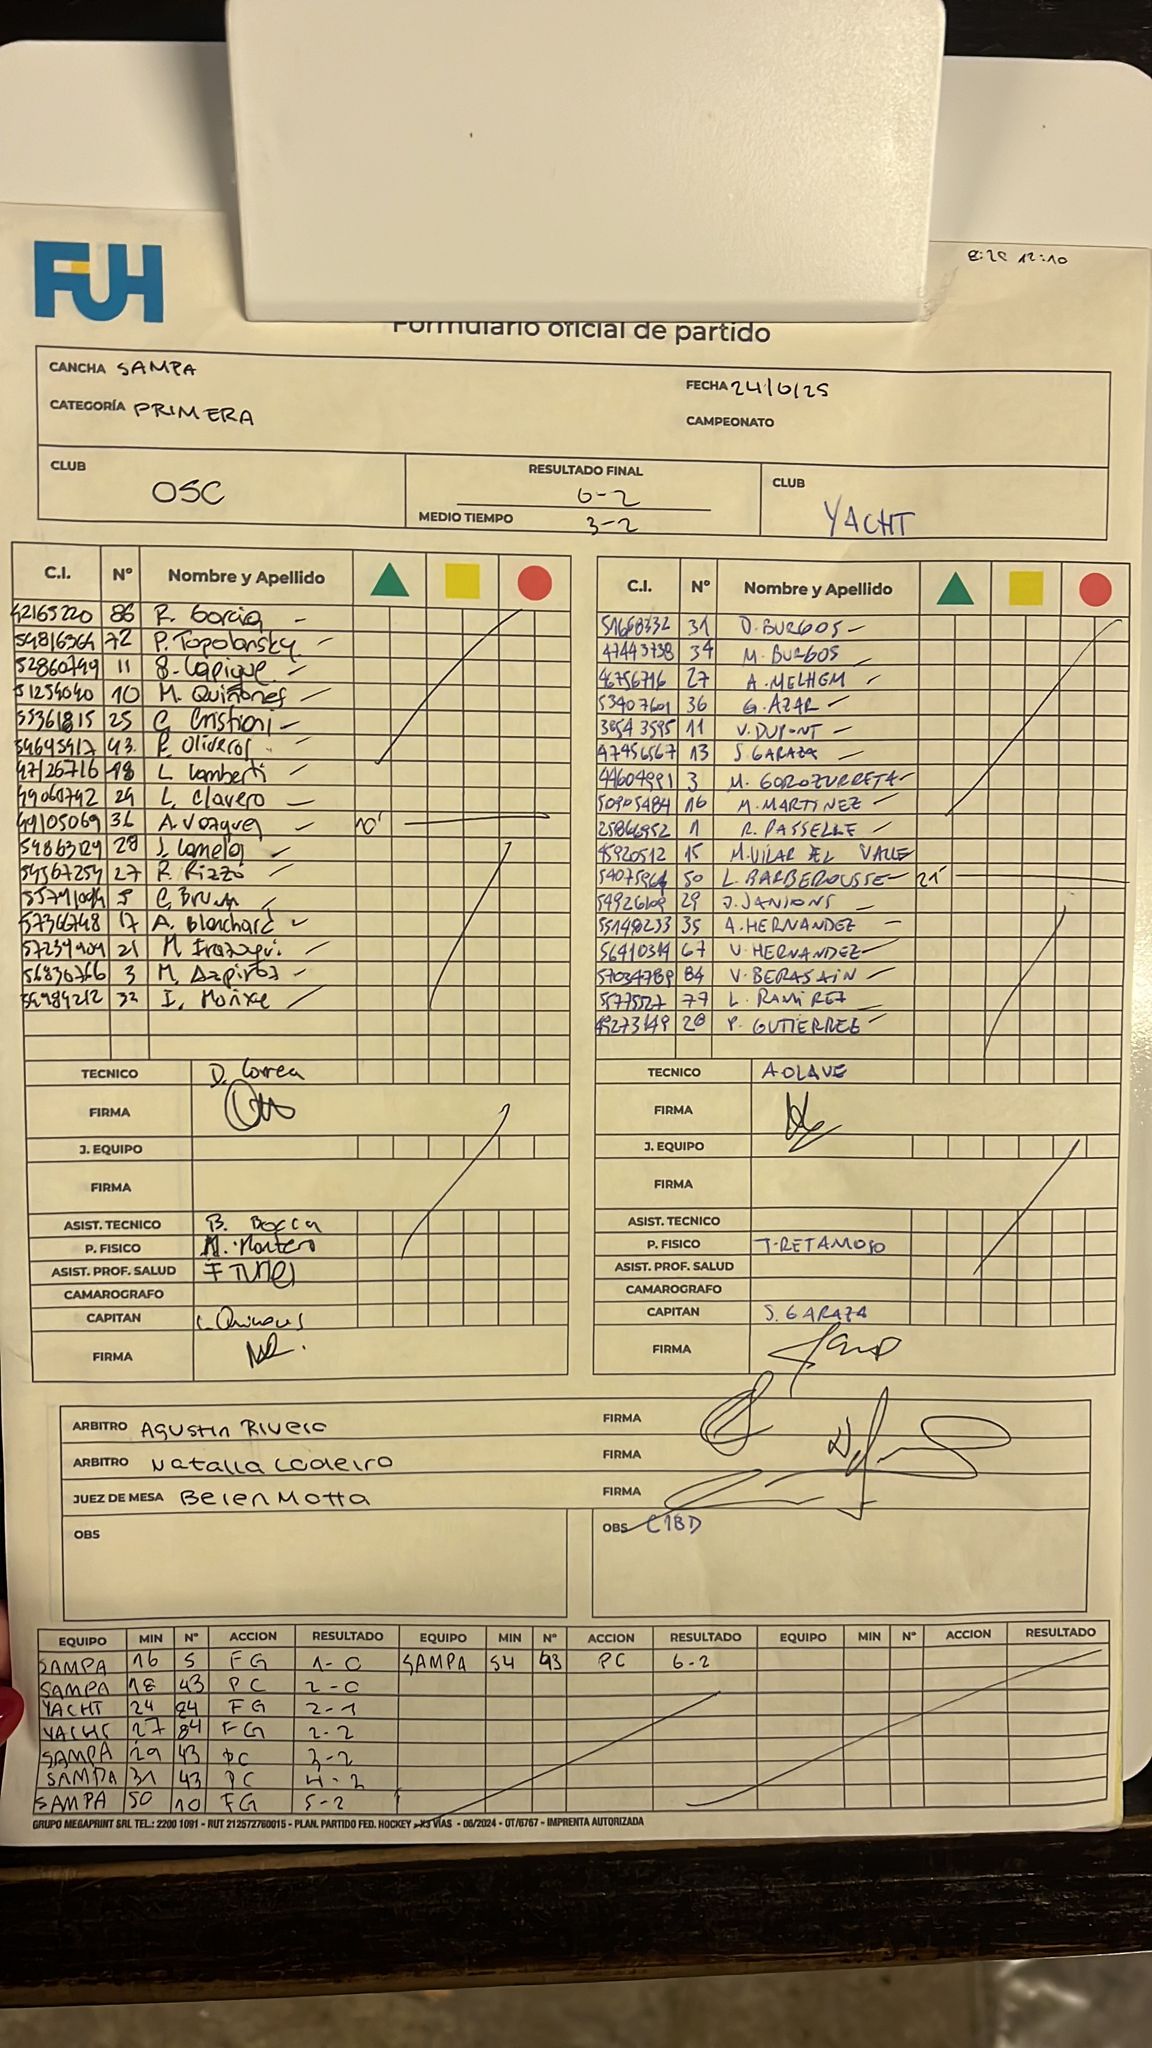 FUH
Formulario oficial de partido
CANCHA SAMPA
FECHA 24/6/25
CATEGORÍA PRIMERA
CAMPEONATO
CLUB OSC
RESULTADO FINAL 6-2
MEDIO TIEMPO 3-2
CLUB YACHT
C.I. Nº Nombre y Apellido
42165220 86 R. Garcia
59816364 72 P. Topolansky
52860749 11 Capique
51254040 10 M. Quiñones
55361815 25 C. Cristiani
54695917 43 Oliveros
47126716 18 L. Lamberti
49060792 29 L. Clavero
49105069 36 A. Vazquez 10'
28
27 Rizzo
5
57366748 17 A. Blanchard
57239909 21 M.
56830766 3 M.
32 I.
TECNICO D. Correa
FIRMA
J. EQUIPO
FIRMA
ASIST. TECNICO B. Bocca
P. FISICO Montero
ASIST. PROF. SALUD
CAMAROGRAFO
CAPITAN
FIRMA
C.I. Nº Nombre y Apellido
51668332 31 D. BURGOS
47443738 34 M. BURGOS
46756716 27 A. MELHEM
53407601 36 G. AZAR
3954 3595 11 V. DUPONT
47456567 13 S. GARAZA
44604991 3 M. GOROZURRETA
50905484 16 M. MARTINEZ
1 R. PASSELLE
45920512 15 M. VILAR DEL VALLE
50 L. BARBEROUSSE 21'
29 J. JANIONS
55148233 35 A. HERNANDEZ
56410314 67 V. HERNANDEZ
57034789 84 V. BERASAIN
79 L. RAMIREZ
49273149 28 P. GUTIERREZ
TECNICO A OLAVE
FIRMA
J. EQUIPO
FIRMA
ASIST. TECNICO
P. FISICO T. RETAMOSO
ASIST. PROF. SALUD
CAMAROGRAFO
CAPITAN S. GARAZA
FIRMA
ARBITRO Agustin Rivero FIRMA
ARBITRO Natalia Codeiro FIRMA
JUEZ DE MESA Belen Motta FIRMA
OBS
OBS
EQUIPO MIN Nº ACCION RESULTADO EQUIPO MIN Nº ACCION RESULTADO EQUIPO MIN Nº ACCION RESULTADO
SAMPA 16 5 FG 1-0 SAMPA 54 43 PC 6-2
SAMPA 18 43 PC 2-0
YACHT 24 84 FG 2-1
YACHT 27 84 FG 2-2
SAMPA 29 43 PC 3-2
SAMPA 31 43 PC 4-2
SAMPA 50 10 FG 5-2
GRUPO MEGAPRINT SRL TEL.: 2200 1091 - RUT 212572760015 - PLAN. PARTIDO FED. HOCKEY - X3 VÍAS - 06/2024 - OT/6767 - IMPRENTA AUTORIZADA